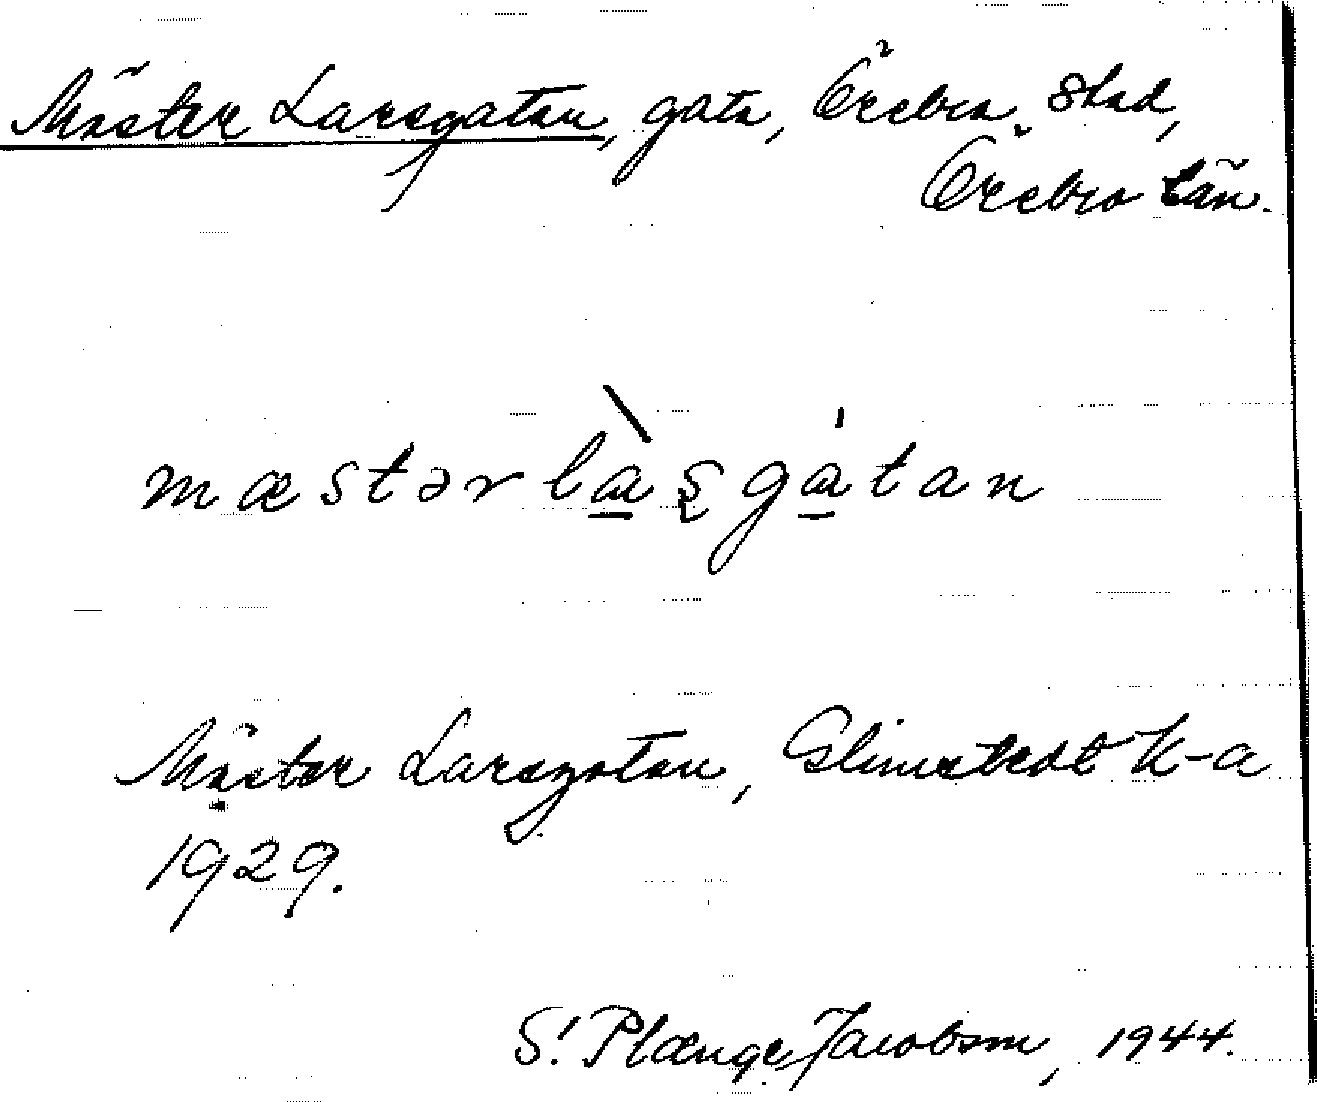 Mäster Larsgatan, gata, Örebro stad,
Örebro län.
mæstərlàʂgátan
Mäster Larsgatan, Glimstedt K-a
1929.
S. Plænge Jacobson, 1944.